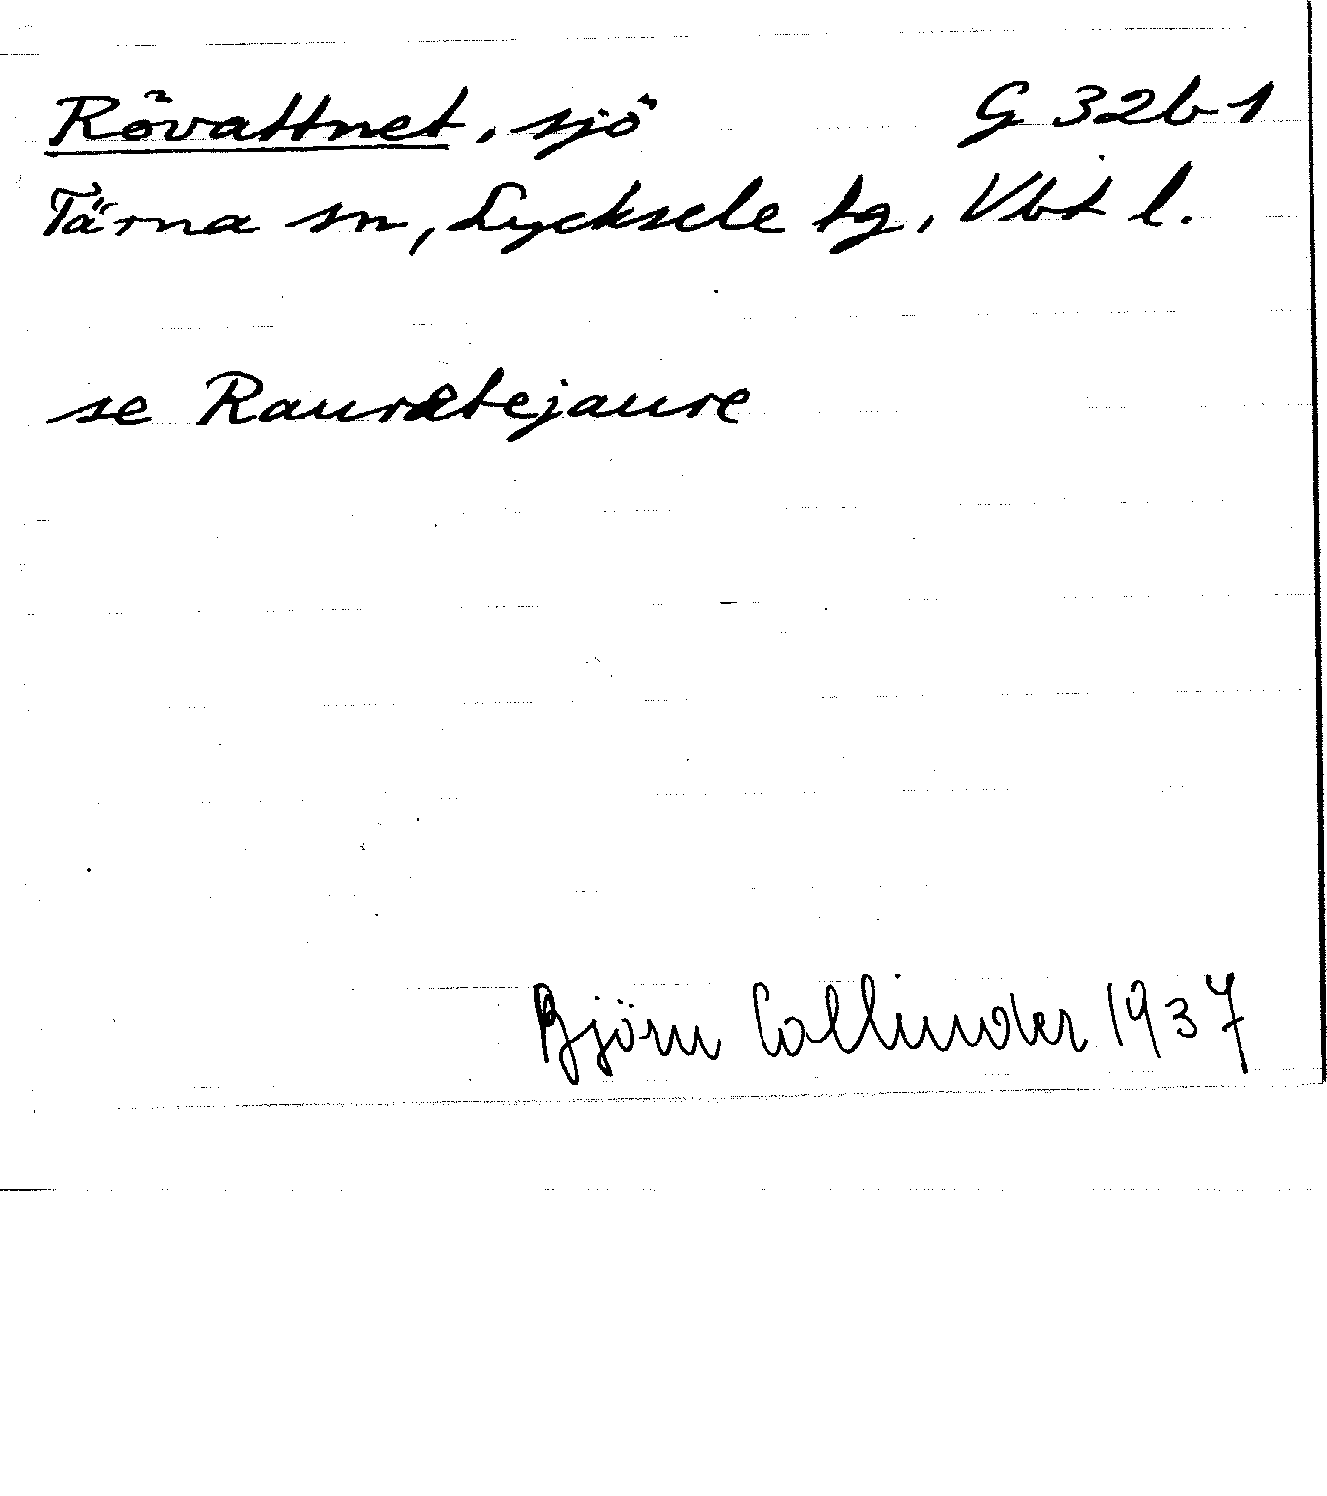 Rövattnet, sjö G 32b1
Tärna sn, Lycksele tg, Vbt l.
se Raurætejaure
Björn Collinder 1937